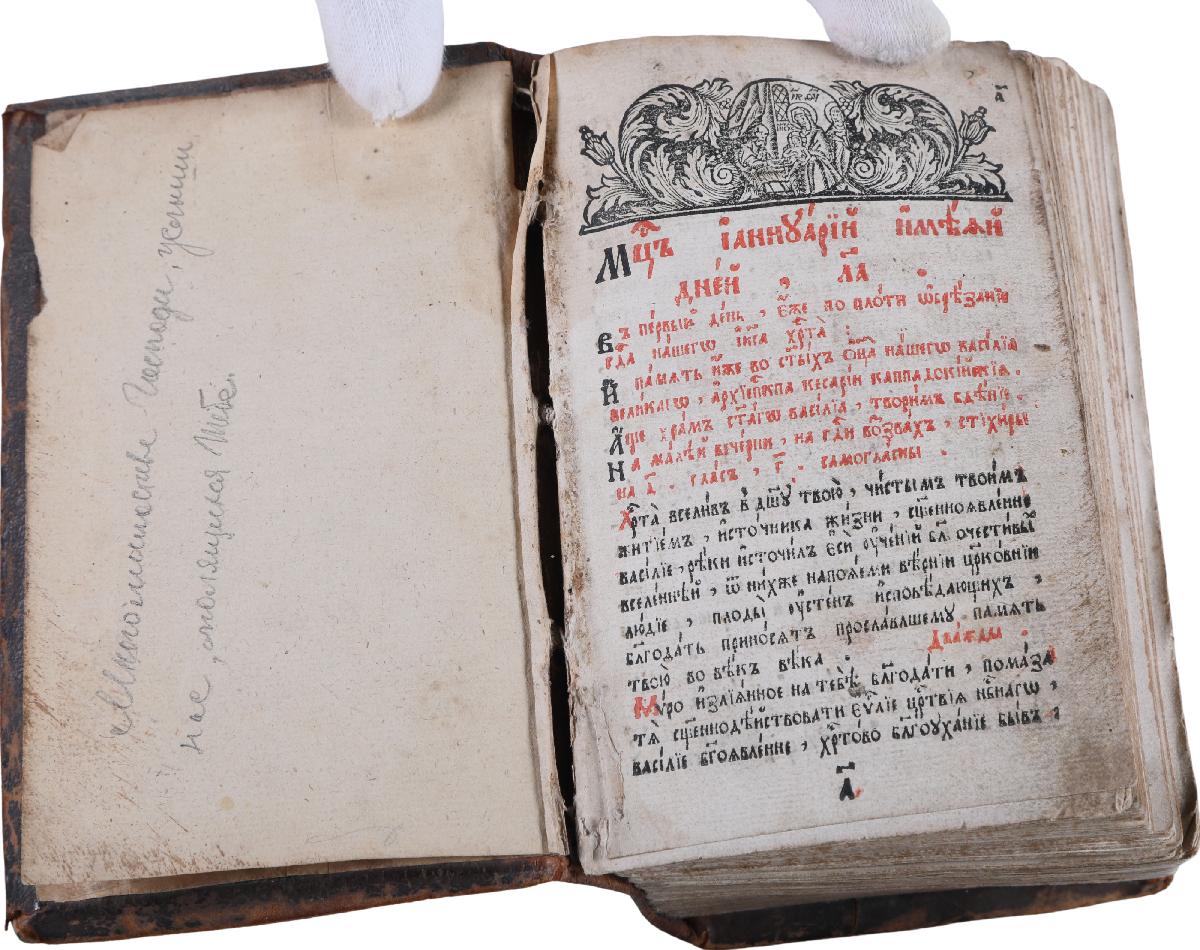 «Многомилостиве Господи, услыши
нас, молящихся Тебе.
а҃
Мцъ їаннуарїй имѣяй
дней, ла.
Въ первый день, еже по плоти ѡбрѣзанїе
гда нашегѡ їиса хрта:
И память иже во стыхъ оца нашегѡ василїа
великагѡ, архїепкпа кесарїи каппадокїйскїя.
Аще храмъ стагѡ василїа, творимъ бдѣнїе.
На малѣй вечерни, на гди воззвахъ, стїхиры
на д. гласъ, г. самогласны.
Хрта вселивъ в дшу твою, чистымъ твоимъ
житїемъ, источника жизни, сщенноявленне
василїе, рѣки источилъ еси ученїй блгочестивы
вселеннѣй, ѿ нихже напояеми вѣрнїи црковнїи
людїе, плоды устенъ исповѣдающихъ,
блгодать приносятъ прославльшему память
твою во вѣкъ вѣка. Дважды.
Мѵро излїянное на тебѣ блгодати, помаза
тя сщеннодѣйствовати еѵлїе цртвїя нбнагѡ,
василїе бгоявленне, хртово блгоуханїе бывъ:
а҃